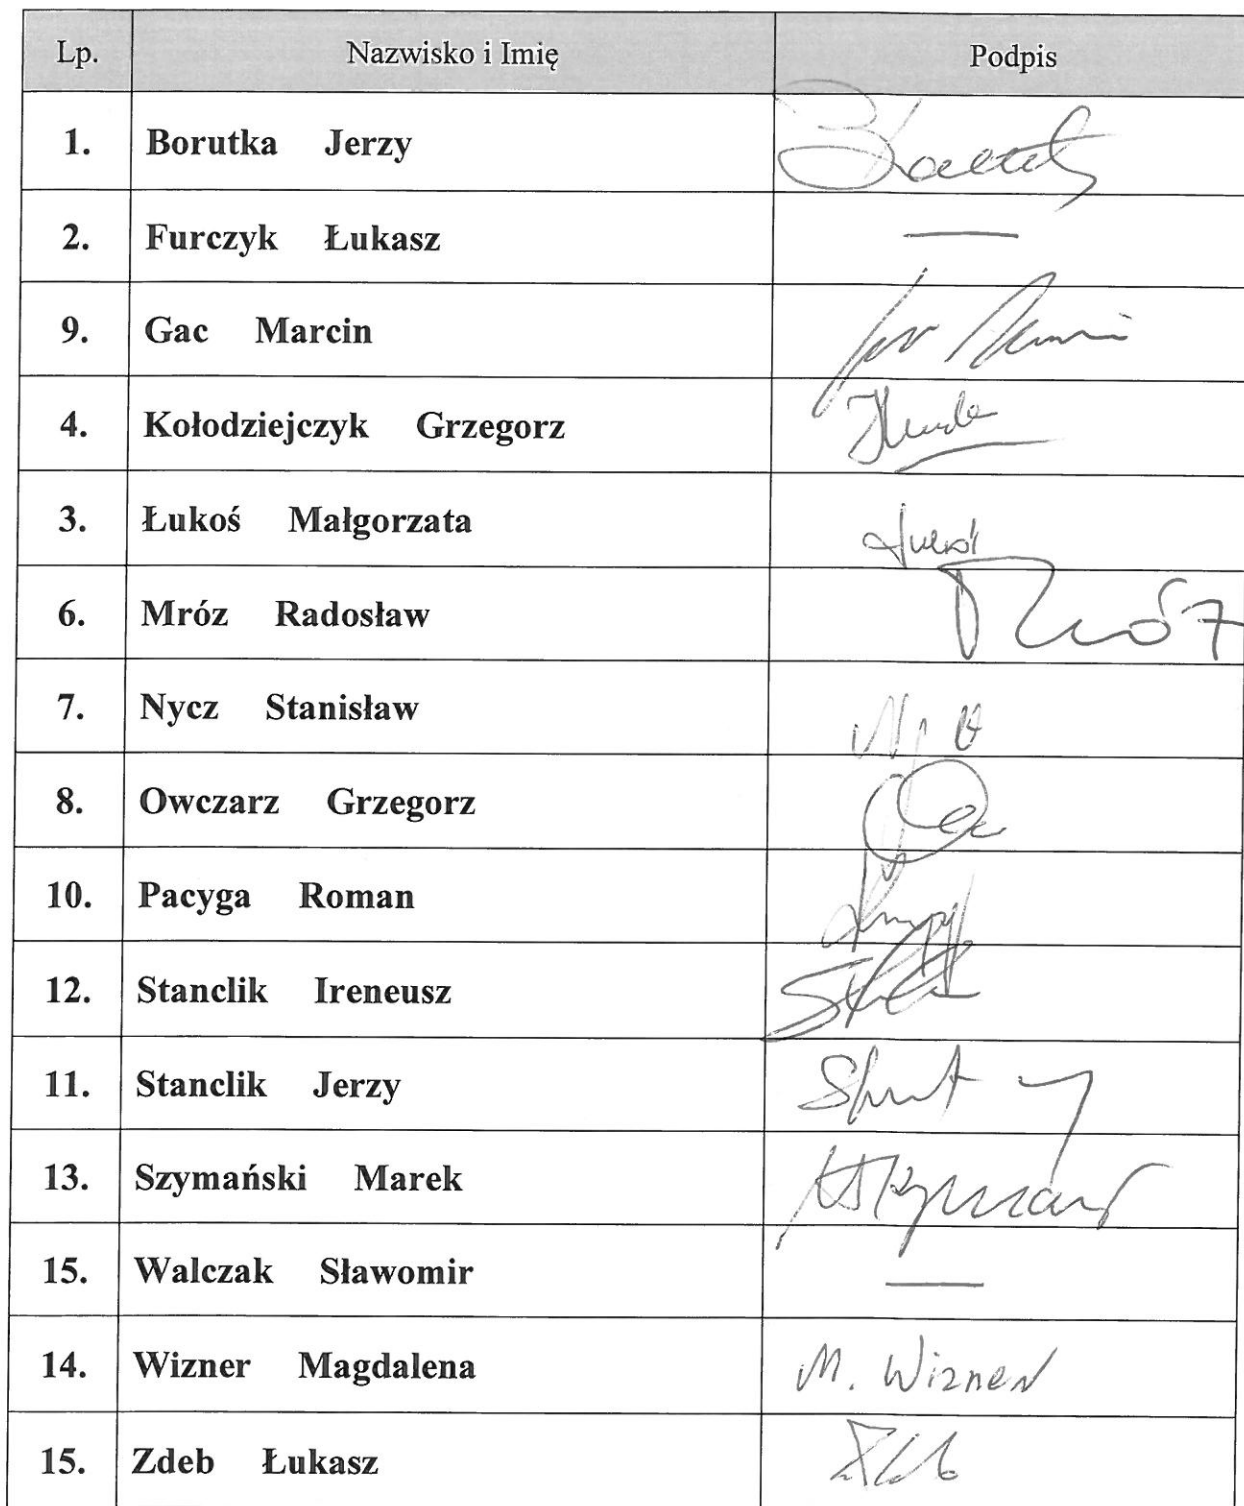 Lp. Nazwisko i Imię Podpis
1. Borutka Jerzy
2. Furczyk Łukasz —
9. Gac Marcin
4. Kołodziejczyk Grzegorz
3. Łukoś Małgorzata
6. Mróz Radosław Mróz
7. Nycz Stanisław
8. Owczarz Grzegorz
10. Pacyga Roman
12. Stanclik Ireneusz
11. Stanclik Jerzy
13. Szymański Marek
15. Walczak Sławomir —
14. Wizner Magdalena M. Wizner
15. Zdeb Łukasz